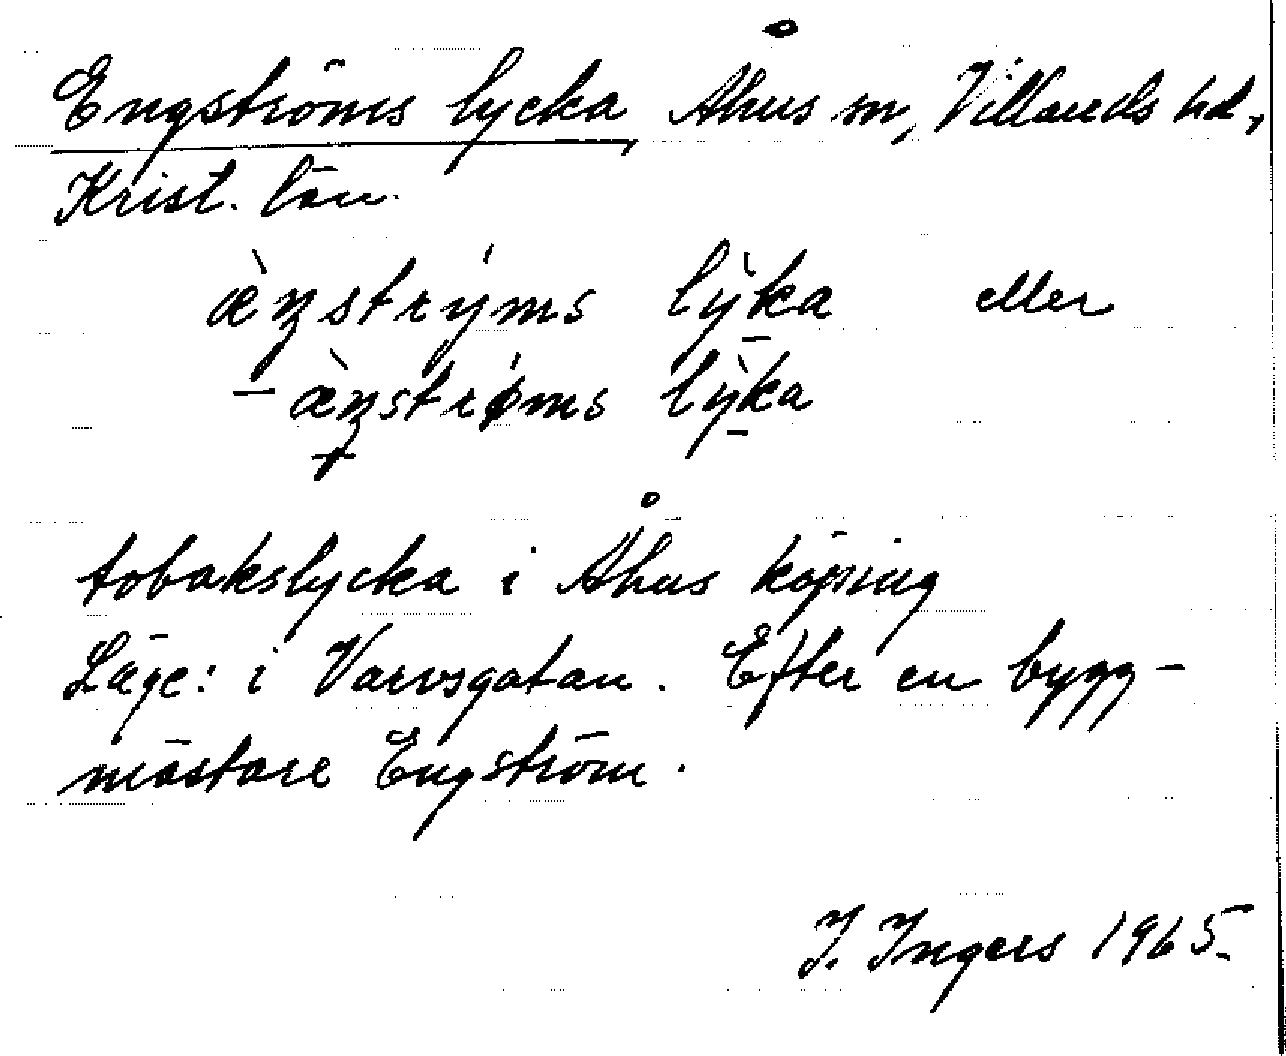 Engströms lycka, Åhus sn, Villands hd,
Krist. län.
æ̀ŋstrýms lỳ̠ka eller
– æ̀ŋstrǿms lỳ̠ka
tobakslycka i Åhus köping
Läge: i Varvsgatan. Efter en bygg-
mästare Engström.
I. Ingers 1965.